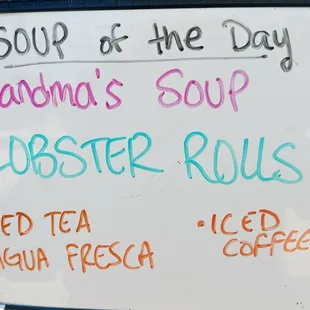 SOUP of the Day
andma's SOUP
LOBSTER ROLLS
ED TEA
AGUA FRESCA
• ICED
COFFEE